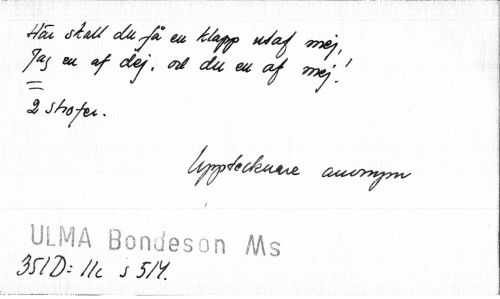 Här skall du få en klapp utaf mej,
Jag en af dej, och du en af mej!
=
2 strofer.
Upptecknare anonym
ULMA Bondeson Ms
351D: 11c s 514.